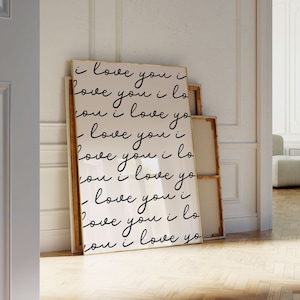 i love you i
love you i lo
you i love yo
love you i
love you i lo
you i love yo
love you i
love you i lo
you i love yo